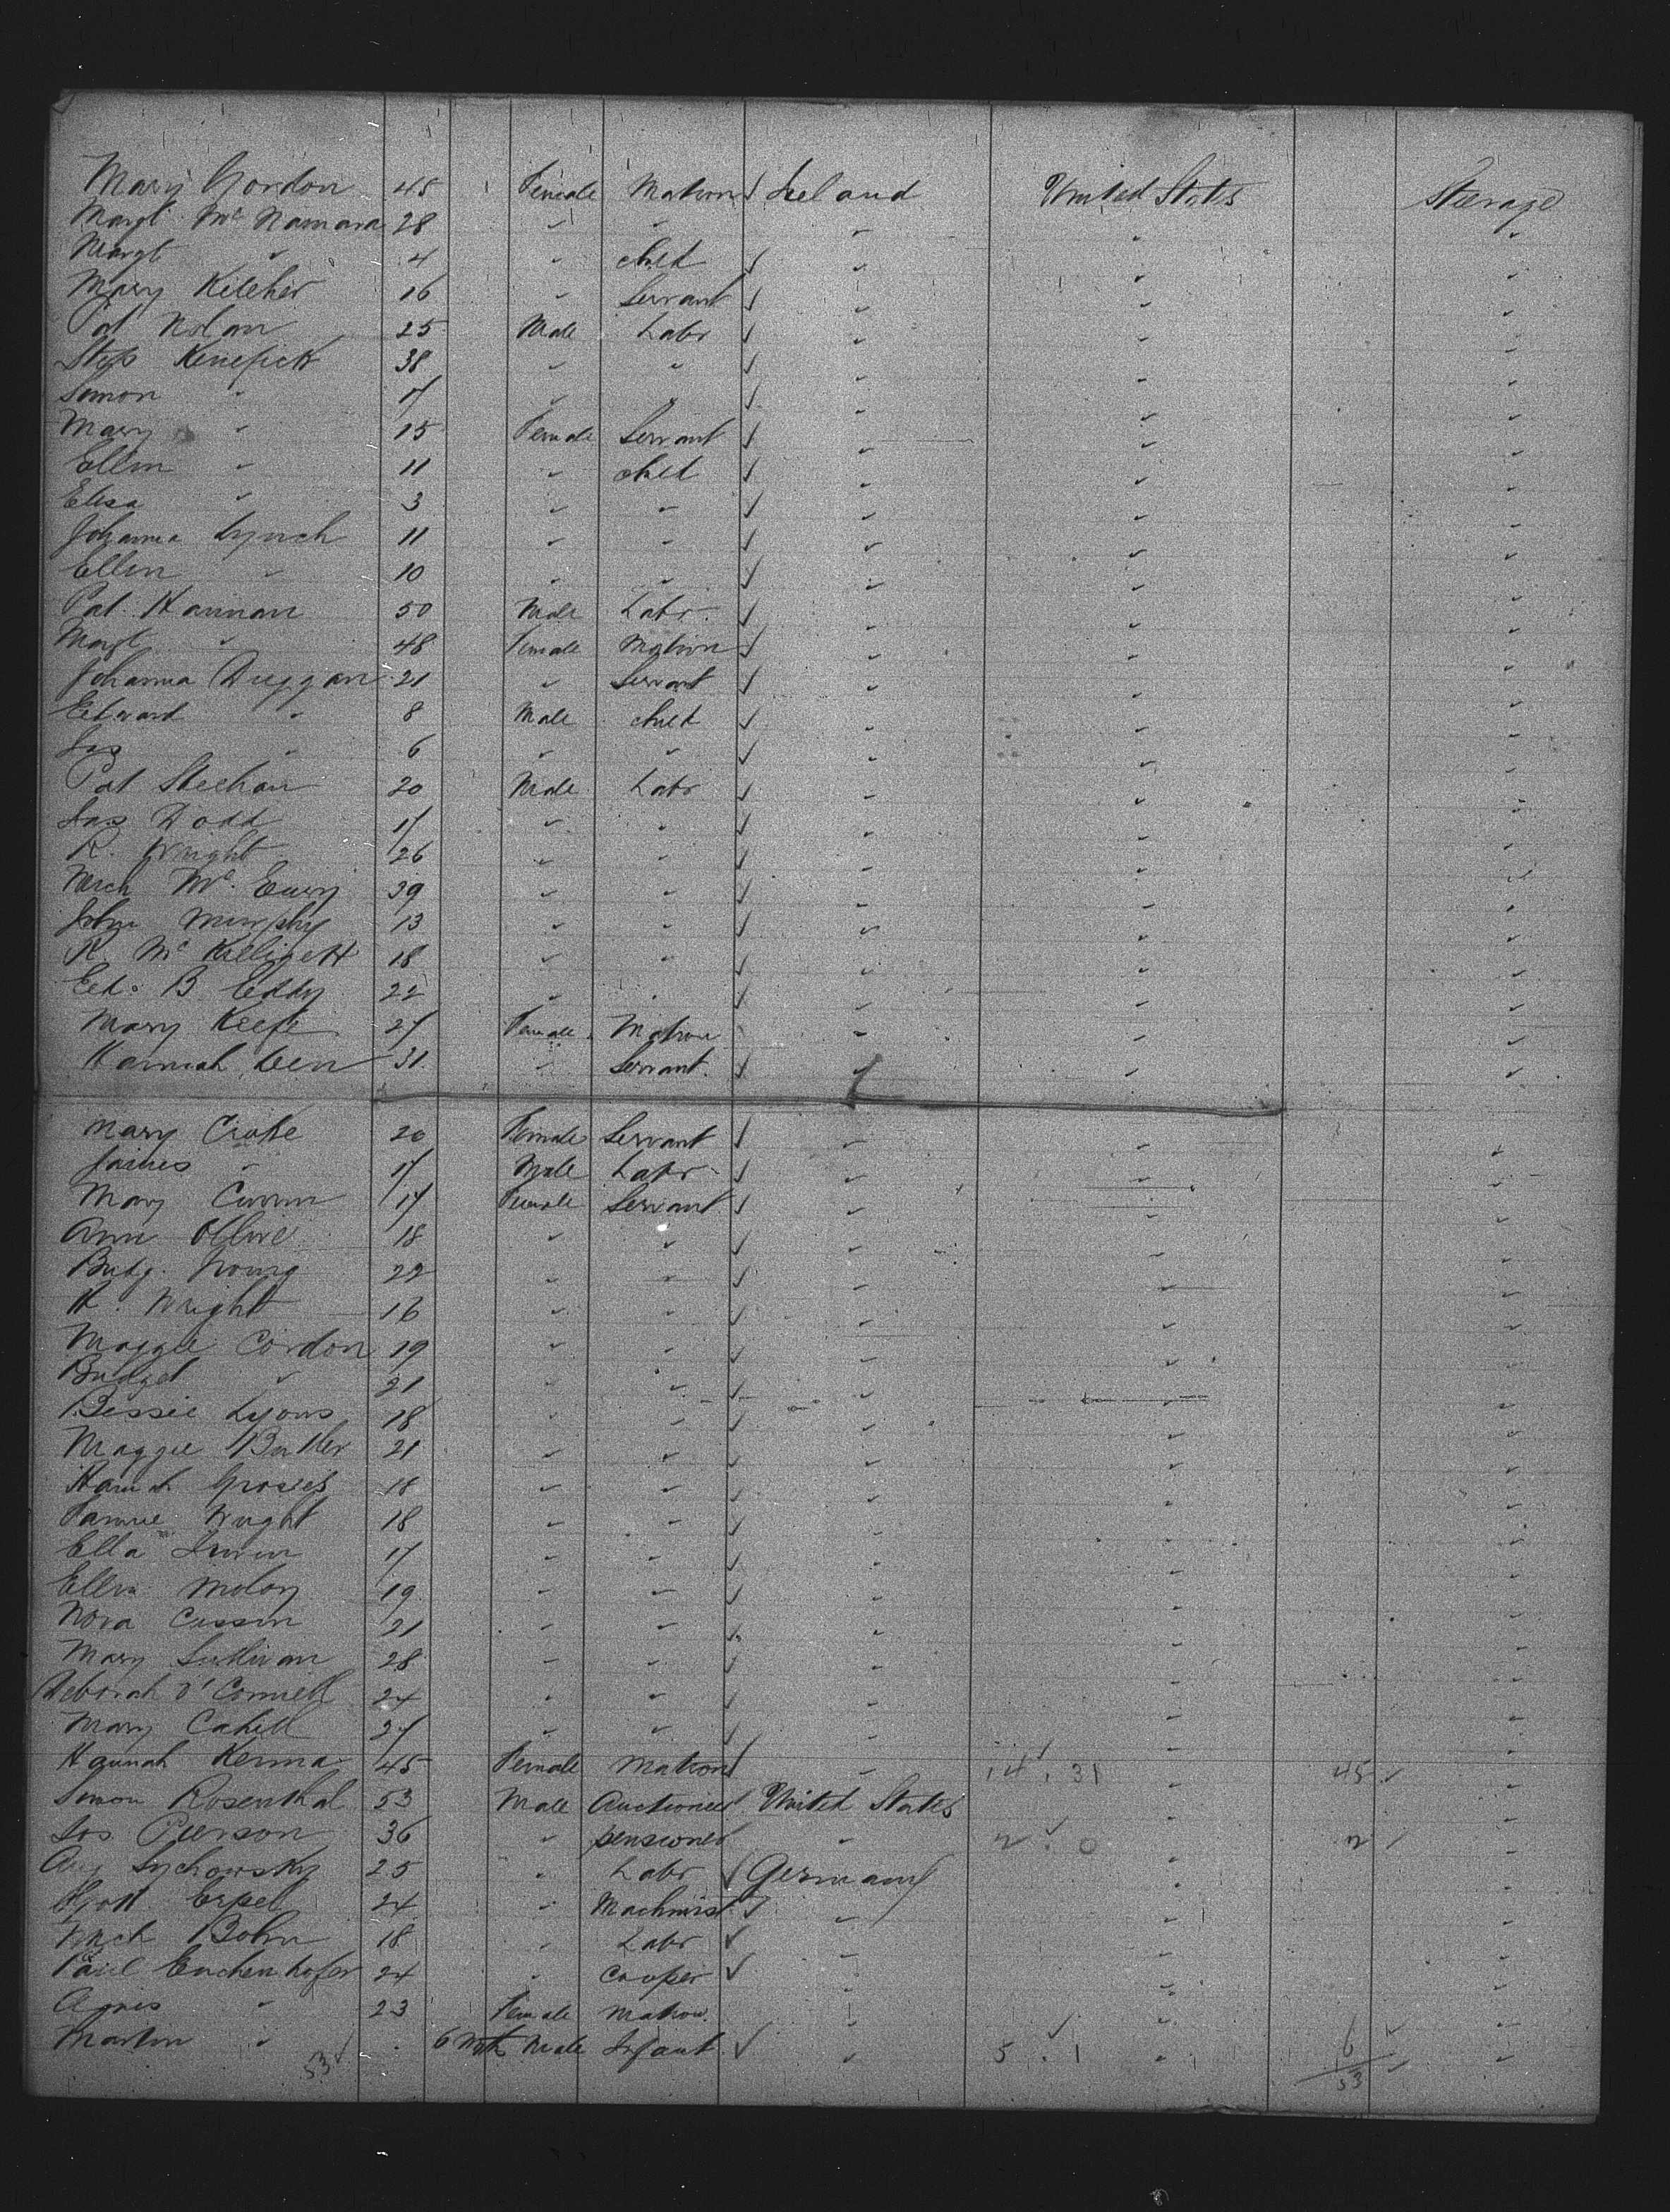 Mary Gordon 45 Female Matron Ireland United States Steerage
Margt Mc Namara 28 " " " " "
Margt " 4 " child " " "
Mary Keleher 16 " Servant " " "
Pat Nolan 25 Male Labr " " "
Step Kenefick 38 " " " " "
Simon " 17 " " " " "
Mary " 15 Female Servant " " "
Ellen " 11 " child " " "
Elisa " 3 " " " " "
Johanna Lynch 11 " " " " "
Ellen " 10 " " " " "
Pat Hannan 50 Male Labr " " "
Margt " 48 Female Matron " " "
Johanna Duggan 21 " Servant " " "
Edward " 8 Male child " " "
Jas " 6 " " " " "
Pat Sheehan 20 Male Labr " " "
Jas Dodd 17 " " " " "
R. Wright 26 " " " " "
Mich Mc. 39 " " " " "
John Murphy 13 " " " " "
R. Mc 18 " " " " "
Ed. B Eddy 22 " " " " "
Mary Keefe 27 Female Matron " " "
Hannah 31 " Servant " " "
Mary Croke 20 Female Servant " " "
James " 17 Male Labr " " "
Mary 17 Female Servant " " "
Ann Ollive 18 " " " " "
Bridg. Young 22 " " " " "
K. Wright 16 " " " " "
Maggie Cordon 19 " " " " "
Bridget " 21 " " " " "
Bessie Lyons 18 " " " " "
Maggie Butler 21 " " " " "
18 " " " " "
Fannie Wright 18 " " " " "
Ella Irwin 17 " " " " "
Ellen Moloy 19 " " " " "
Nora Cussen 21 " " " " "
Mary Sullivan 28 " " " " "
Deborah O'Connell 24 " " " " "
Mary Cahill 27 " " " " "
Hannah Kerma 45 Female Matron " 14 . 31 " 45 "
Simon Rosenthal 53 Male Auctioneer United States " "
Jos Pierson 36 " pensioner " 2 . 0 " 2 "
Aug Lychowsky 25 " Labr Germany " "
Erpel 24 " Machinist " " "
Mich Bohn 18 " Labr " " "
Paul Enchenhofer 24 " Cooper " " "
Agnes " 23 Female Matron " " "
Martin " 6 Mth Male Infant " 5 . 1 " 6 "
53 53